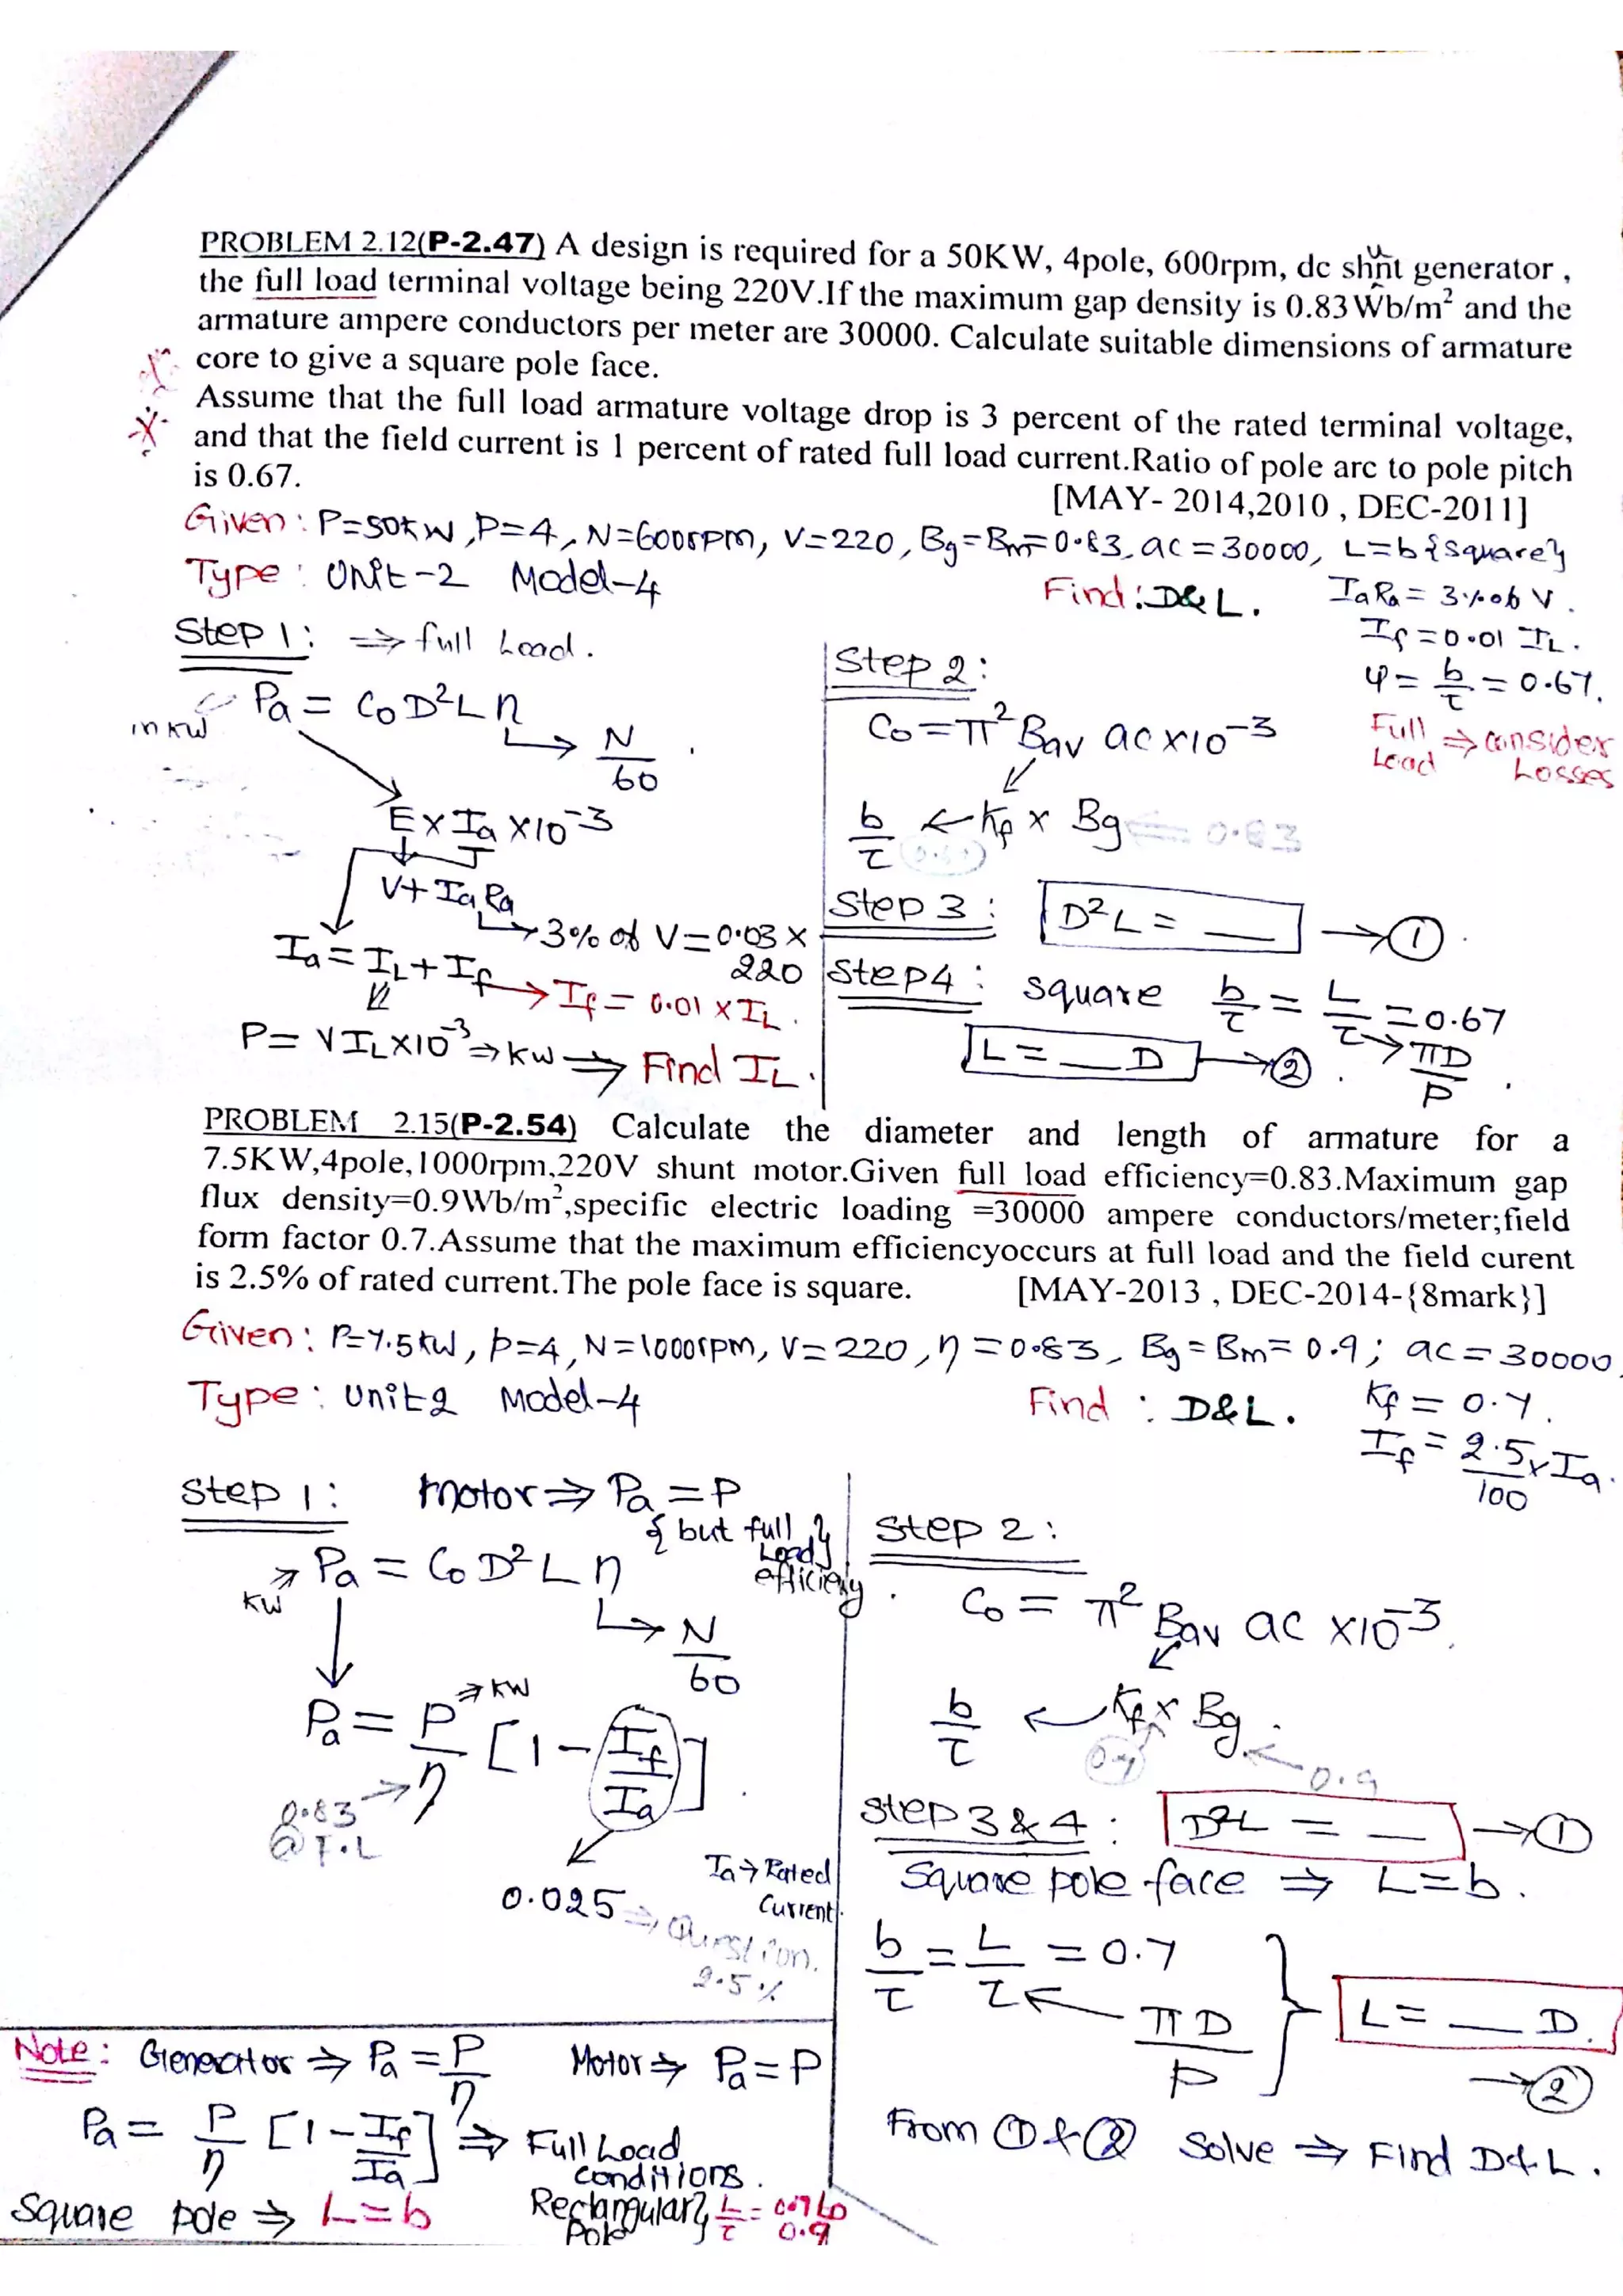 PROBLEM 2.12(P-2.47) A design is required for a 50KW, 4pole, 600rpm, dc shunt generator ,
the full load terminal voltage being 220V.If the maximum gap density is 0.83Wb/m² and the
armature ampere conductors per meter are 30000. Calculate suitable dimensions of armature
core to give a square pole face.
Assume that the full load armature voltage drop is 3 percent of the rated terminal voltage,
and that the field current is 1 percent of rated full load current.Ratio of pole arc to pole pitch
is 0.67.
[MAY- 2014,2010 , DEC-2011]
Given : P=50kW, P=4, N=600rpm, V=220, Bg=Bm=0.83, ac=30000, L=b{square}
Type : Unit-2 Model-4
Find : D&L.
IaRa = 3% of V.
If = 0.01 IL.
φ = b/τ = 0.67.
Full Load ⇒ consider Losses
Step 1: ⇒ full Load.
Pa = C₀D²Ln
in kW
N/60
E×Ia×10⁻³
V+IaRa
3% of V = 0.03×220
Ia = IL+If → If = 0.01×IL.
P = VIL×10⁻³ ⇒ kW ⇒ Find IL.
Step 2:
C₀ = π² Bav ac×10⁻³
b/τ ← Kf × Bg ⇐ 0.83
Step 3: D²L = __ → ①
Step4: square b/τ = L/τ = 0.67
πD/P
L = __ D → ②.
PROBLEM 2.15(P-2.54) Calculate the diameter and length of armature for a
7.5KW,4pole,1000rpm,220V shunt motor.Given full load efficiency=0.83.Maximum gap
flux density=0.9Wb/m²,specific electric loading =30000 ampere conductors/meter;field
form factor 0.7.Assume that the maximum efficiencyoccurs at full load and the field curent
is 2.5% of rated current.The pole face is square.
[MAY-2013 , DEC-2014-{8mark}]
Given : P=7.5kW, p=4, N=1000rpm, V=220, η=0.83, Bg=Bm=0.9; ac=30000
Type : Unit2 Model-4
Find : D&L.
Kf = 0.7.
If = 2.5/100 × Ia.
Step 1: motor ⇒ Pa = P
{but full Load} efficiency.
kW Pa = C₀D²Ln
N/60
Pa = P/η [1 - If/Ia].
⇒ kW
0.83
@ F.L
0.025 ⇒ Question.
2.5%
Ia → Rated Current.
Step 2:
C₀ = π² Bav ac ×10⁻³.
b/τ ← Kf × Bg.
0.7
0.9
Step 3 & 4: D²L = __ → ①
Square pole face ⇒ L=b.
b/τ = L/τ = 0.7
πD/P
L = __ D.
→ ②
From ① & ② Solve ⇒ Find D&L.
Note: Generator ⇒ Pa = P/η Motor ⇒ Pa = P
Pa = P/η [1 - If/Ia] ⇒ Full Load conditions.
Square pole ⇒ L=b
Rectangular Pole} L/τ = 0.7 to 0.9